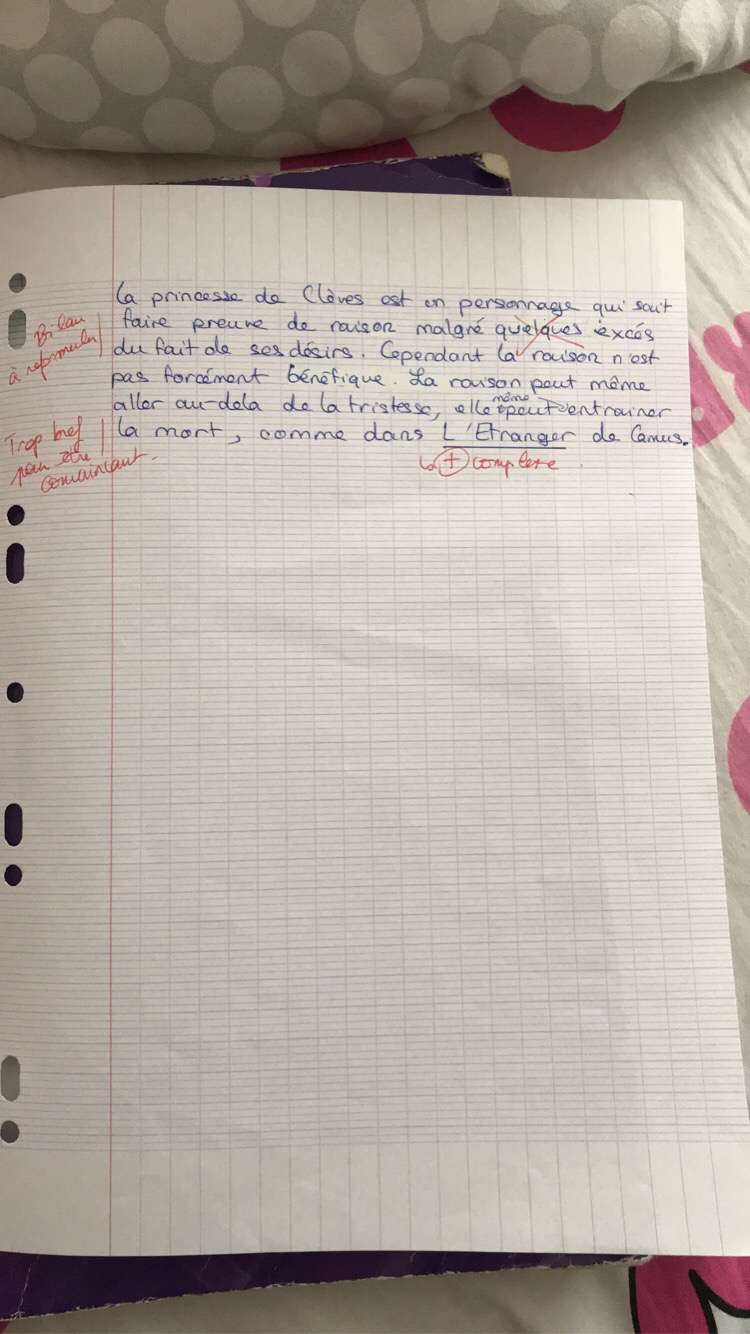 La princesse de Clèves est un personnage qui sait
faire preuve de raison malgré quelques excés
du fait de ses désirs. Cependant la raison n'est
pas forcément bénéfique. La raison peut même
aller au-dela de la tristesse, elle peut même entrainer
la mort, comme dans L'Etranger de Camus.
Bilan
à reformuler
Trop bref
pour être
convaincant.
↳ + complexe.